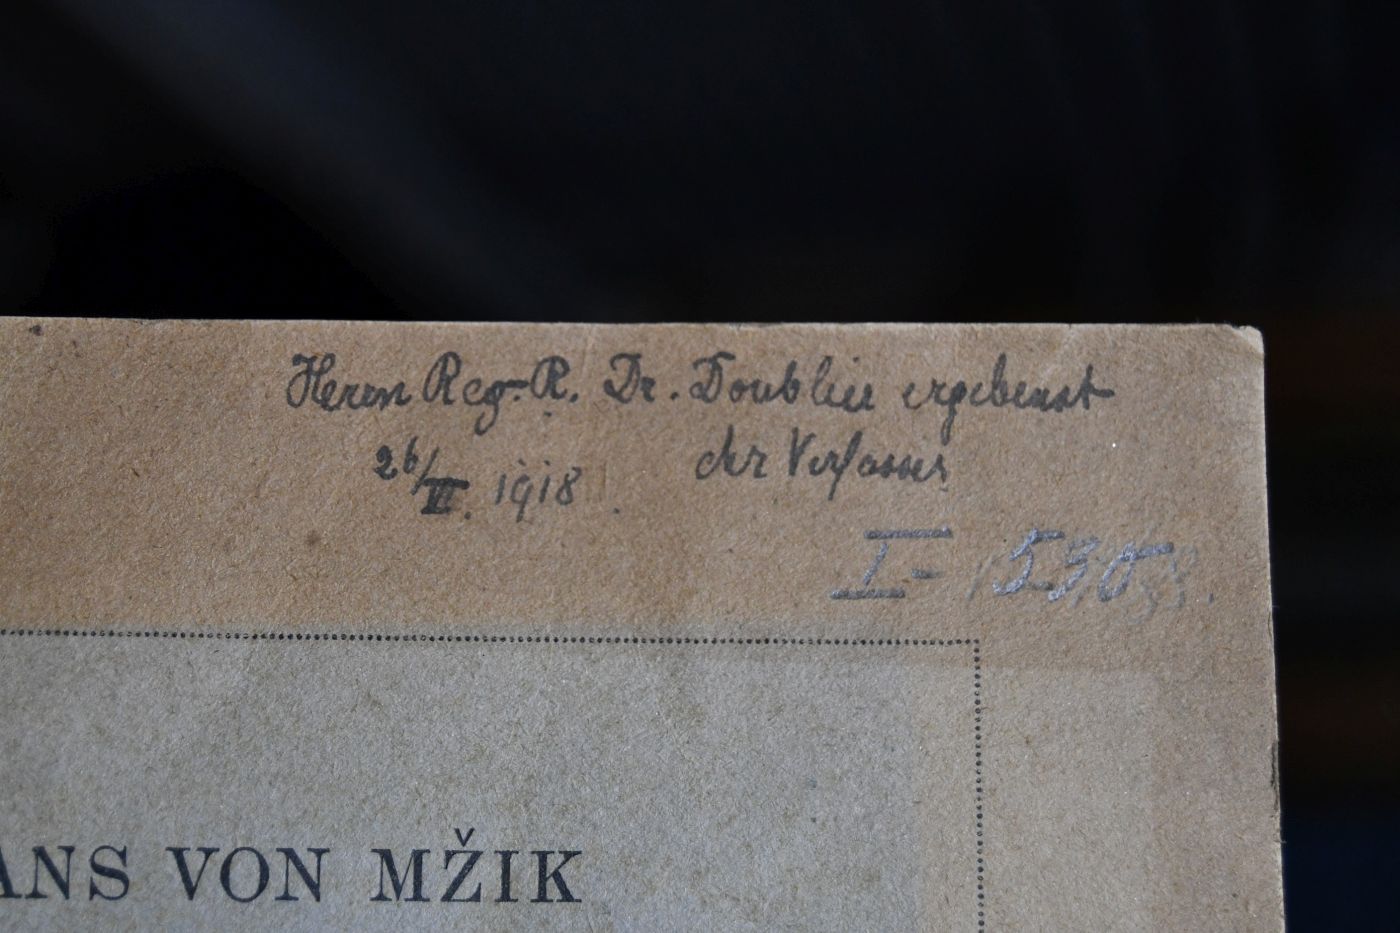 Herrn Reg.-R. Dr. Doublier ergebenst
der Verfasser
26/VI. 1918
I- 530
ANS VON MŽIK